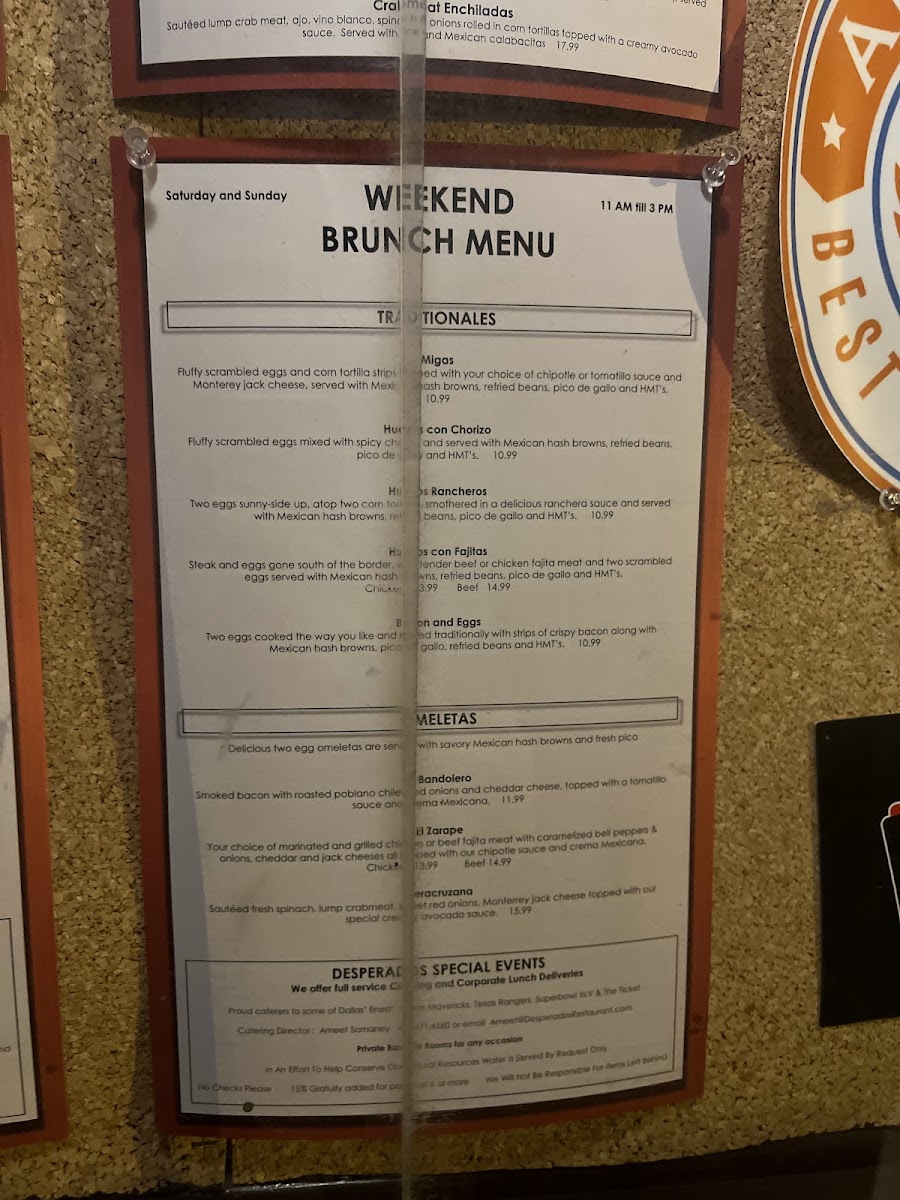 Crabmeat Enchiladas
Sautéed lump crab meat, ajo, vino blanco, spinach & onions rolled in corn tortillas topped with a creamy avocado
sauce. Served with rice and Mexican calabacitas 17.99
served
Saturday and Sunday
WEEKEND
BRUNCH MENU
11 AM till 3 PM
TRADITIONALES
Migas
Fluffy scrambled eggs and corn tortilla strips topped with your choice of chipotle or tomatillo sauce and
Monterey jack cheese, served with Mexican hash browns, refried beans, pico de gallo and HMT's.
10.99
Huevos con Chorizo
Fluffy scrambled eggs mixed with spicy chorizo and served with Mexican hash browns, refried beans,
pico de gallo and HMT's. 10.99
Huevos Rancheros
Two eggs sunny-side up, atop two corn tortillas, smothered in a delicious ranchera sauce and served
with Mexican hash browns, refried beans, pico de gallo and HMT's. 10.99
Huevos con Fajitas
Steak and eggs gone south of the border, with tender beef or chicken fajita meat and two scrambled
eggs served with Mexican hash browns, refried beans, pico de gallo and HMT's.
Chicken 13.99 Beef 14.99
Bacon and Eggs
Two eggs cooked the way you like and served traditionally with strips of crispy bacon along with
Mexican hash browns, pico de gallo, refried beans and HMT's. 10.99
OMELETAS
Delicious two egg omeletas are served with savory Mexican hash browns and fresh pico
Bandolero
Smoked bacon with roasted poblano chiles, red onions and cheddar cheese, topped with a tomatillo
sauce and crema Mexicana. 11.99
El Zarape
Your choice of marinated and grilled chicken or beef fajita meat with caramelized bell peppers &
onions, cheddar and jack cheeses all topped with our chipotle sauce and crema Mexicana.
Chicken 13.99 Beef 14.99
Veracruzana
Sautéed fresh spinach, lump crabmeat, sweet red onions, Monterrey jack cheese topped with our
special creamy avocado sauce. 15.99
DESPERADOS SPECIAL EVENTS
We offer full service Catering and Corporate Lunch Deliveries
Proud caterers to some of Dallas' finest: Mavericks, Texas Rangers, Superbowl XLV & The Ticket
Catering Director: Ameet Somaney 4580 or email Ameet@DesperadosRestaurant.com
Private Banquet Rooms for any occasion
In An Effort To Help Conserve Our Natural Resources Water Is Served By Request Only
No Checks Please 15% Gratuity added for parties of 6 or more We Will Not Be Responsible For Items Left Behind
A
BEST